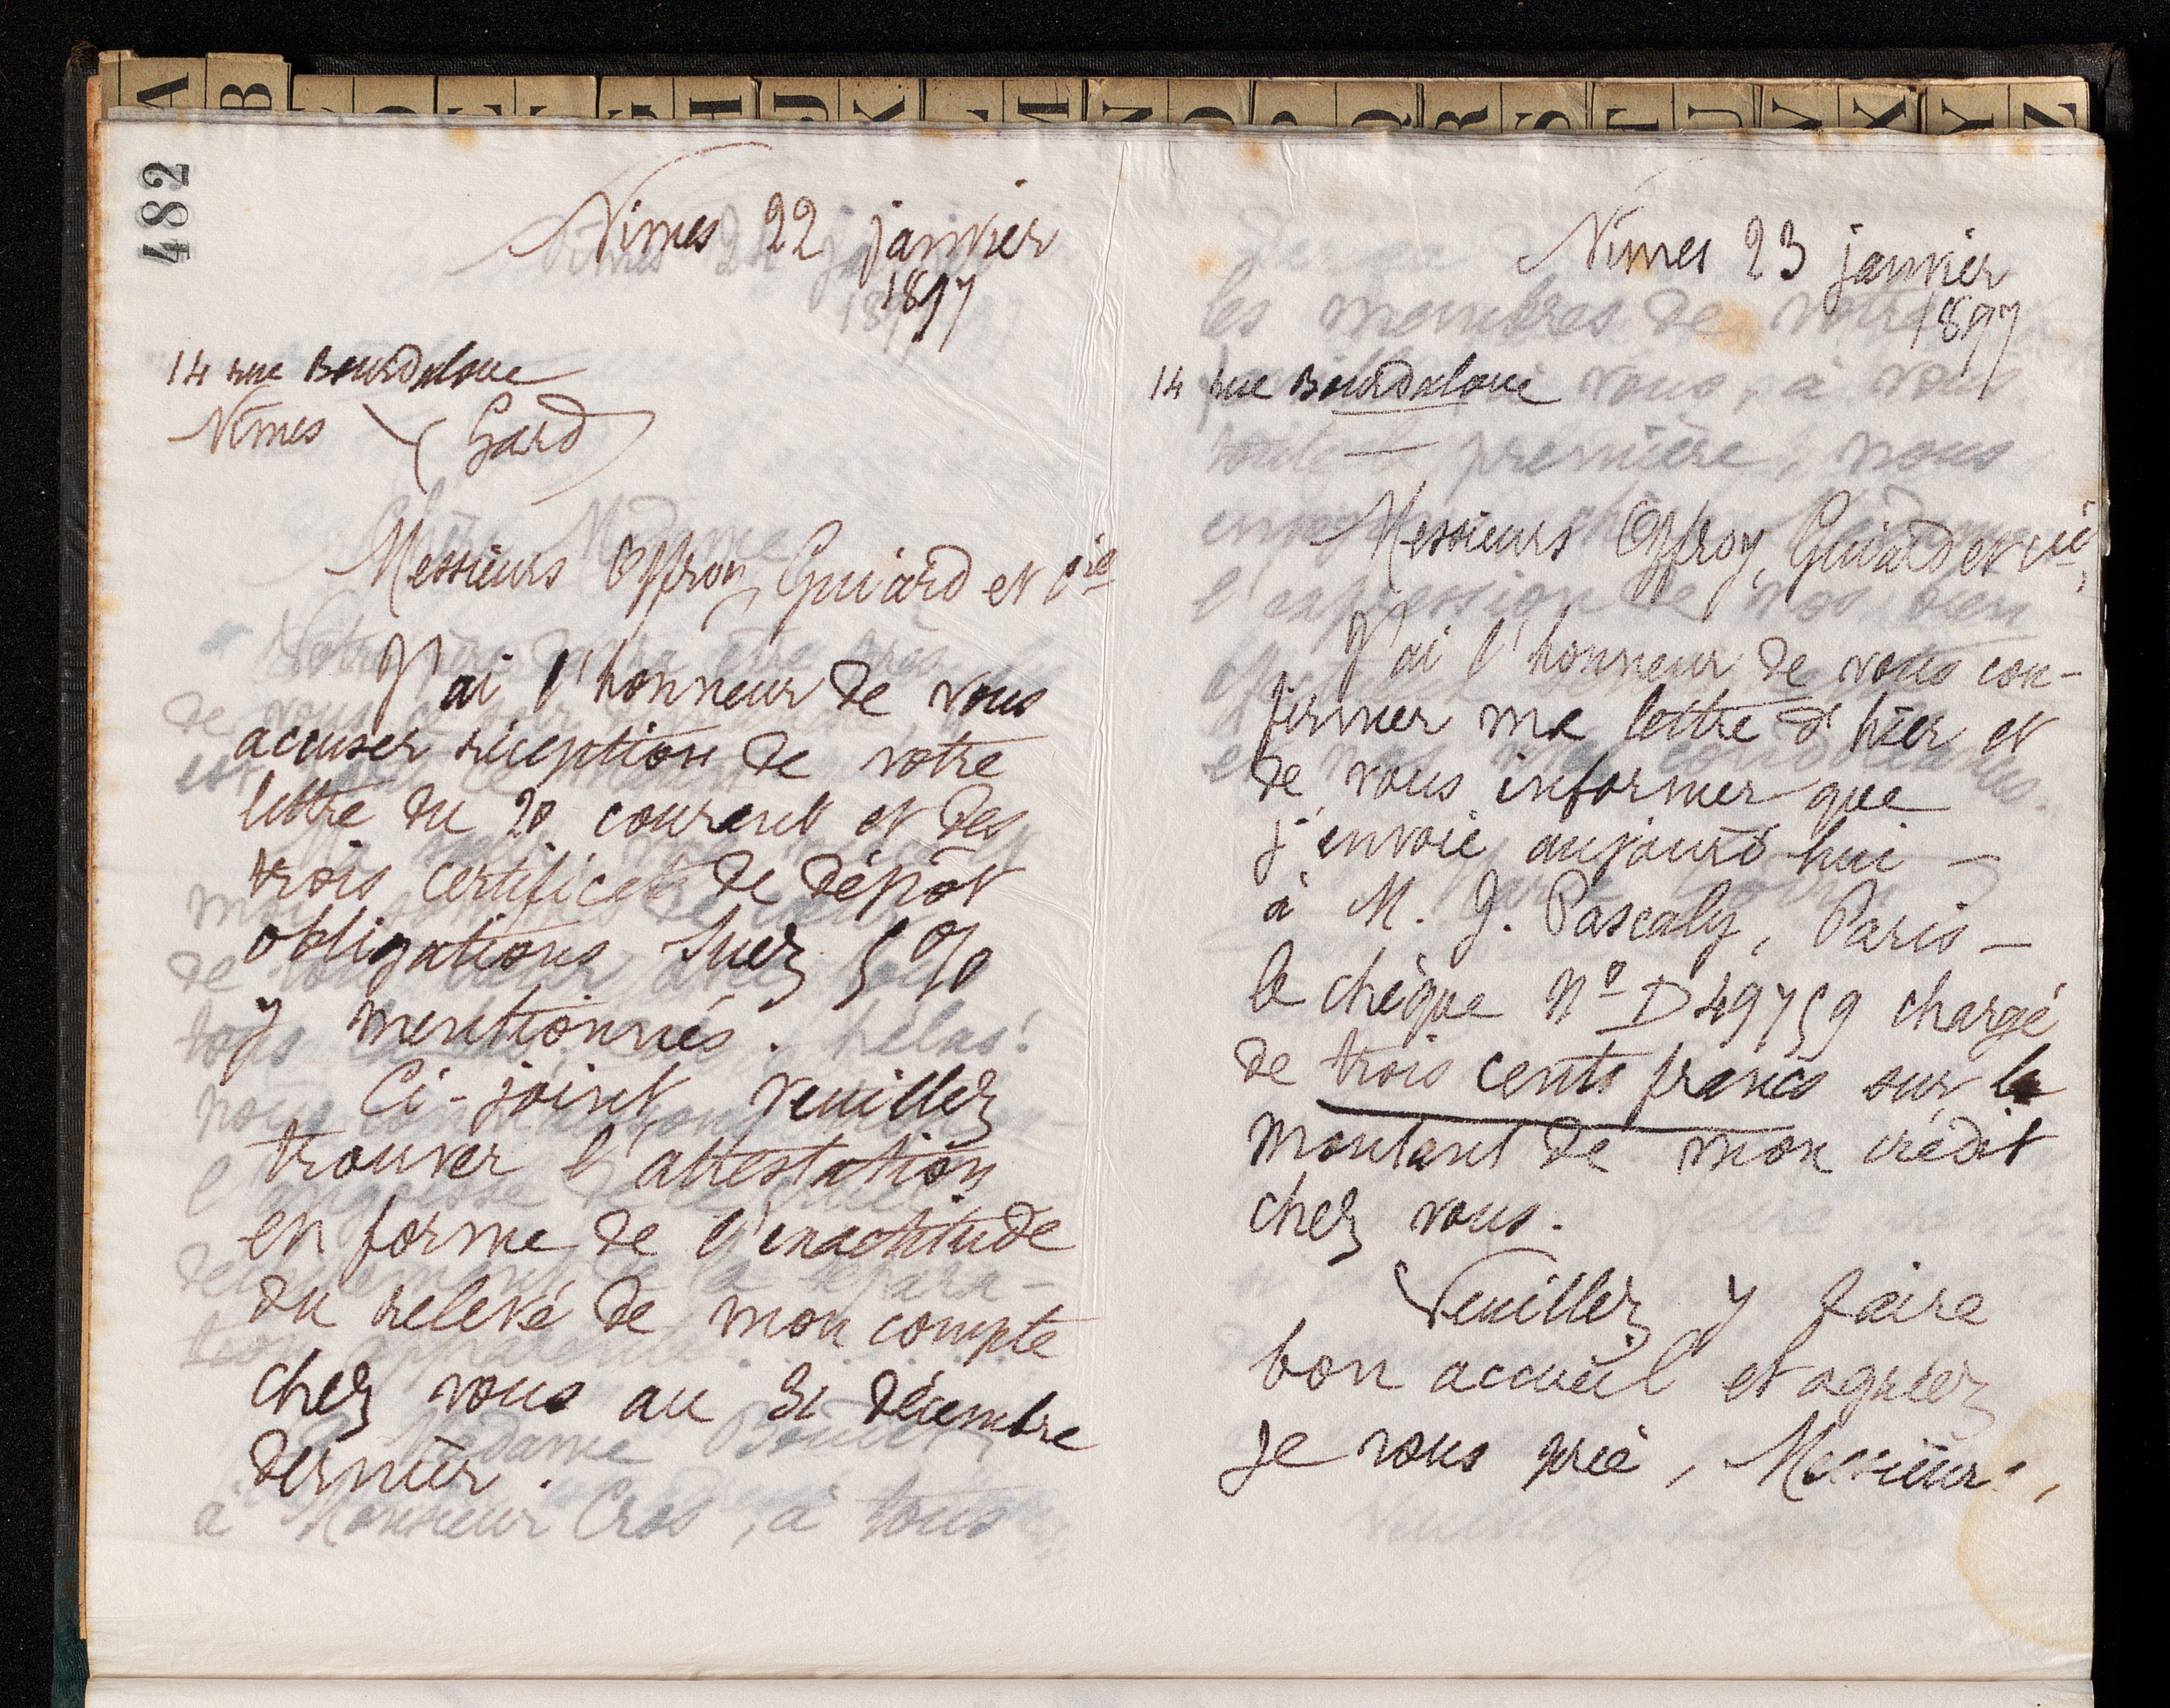 A B H J K M N O P Q R S T U V X Y Z
482
Nimes 22 janvier
1897
14 rue Bourdaloue
Nîmes (Gard)
Messieurs Offroy, Guiard et Cie
J'ai l'honneur de vous
accuser réception de votre
lettre du 20 courant et des
trois certificats de dépôt
obligations Suez 5 %
y mentionnés.
Ci-joint veuillez
trouver l'attestation
en forme de l'exactitude
du relevé de mon compte
chez vous au 31 décembre
dernier.
à Monsieur Cros, à tous
Nimes 23 janvier
1897
14 rue Bourdaloue
Messieurs Offroy, Guiard et Cie,
J'ai l'honneur de vous con-
firmer ma lettre d'hier et
de vous informer que
j'envoie aujourd'hui –
à M. J. Pascaly, Paris –
le chèque No D 49759 chargé
de trois cents francs sur le
montant de mon crédit
chez vous.
Veuillez y faire
bon accueil et agréez
je vous prie, Messieurs,